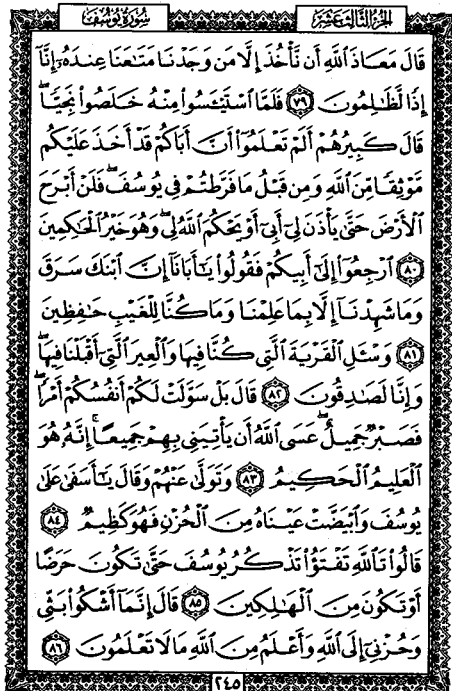 سُورَةُ يُوسُفَ
الجُزْءُ الثَّالِثَ عَشَرَ
قَالَ مَعَاذَ اللَّهِ أَن نَّأْخُذَ إِلَّا مَن وَجَدْنَا مَتَٰعَنَا عِندَهُۥٓ إِنَّآ
إِذًا لَّظَٰلِمُونَ ﴿٧٩﴾ فَلَمَّا ٱسْتَيْـَٔسُوا۟ مِنْهُ خَلَصُوا۟ نَجِيًّا ۖ
قَالَ كَبِيرُهُمْ أَلَمْ تَعْلَمُوٓا۟ أَنَّ أَبَاكُمْ قَدْ أَخَذَ عَلَيْكُم
مَّوْثِقًا مِّنَ ٱللَّهِ وَمِن قَبْلُ مَا فَرَّطتُمْ فِى يُوسُفَ ۖ فَلَنْ أَبْرَحَ
ٱلْأَرْضَ حَتَّىٰ يَأْذَنَ لِىٓ أَبِىٓ أَوْ يَحْكُمَ ٱللَّهُ لِى ۖ وَهُوَ خَيْرُ ٱلْحَٰكِمِينَ
﴿٨٠﴾ ٱرْجِعُوٓا۟ إِلَىٰٓ أَبِيكُمْ فَقُولُوا۟ يَٰٓأَبَانَآ إِنَّ ٱبْنَكَ سَرَقَ
وَمَا شَهِدْنَآ إِلَّا بِمَا عَلِمْنَا وَمَا كُنَّا لِلْغَيْبِ حَٰفِظِينَ
﴿٨١﴾ وَسْـَٔلِ ٱلْقَرْيَةَ ٱلَّتِى كُنَّا فِيهَا وَٱلْعِيرَ ٱلَّتِىٓ أَقْبَلْنَا فِيهَا ۖ
وَإِنَّا لَصَٰدِقُونَ ﴿٨٢﴾ قَالَ بَلْ سَوَّلَتْ لَكُمْ أَنفُسُكُمْ أَمْرًا ۖ
فَصَبْرٌ جَمِيلٌ ۖ عَسَى ٱللَّهُ أَن يَأْتِيَنِى بِهِمْ جَمِيعًا ۚ إِنَّهُۥ هُوَ
ٱلْعَلِيمُ ٱلْحَكِيمُ ﴿٨٣﴾ وَتَوَلَّىٰ عَنْهُمْ وَقَالَ يَٰٓأَسَفَىٰ عَلَىٰ
يُوسُفَ وَٱبْيَضَّتْ عَيْنَاهُ مِنَ ٱلْحُزْنِ فَهُوَ كَظِيمٌ ﴿٨٤﴾
قَالُوا۟ تَٱللَّهِ تَفْتَؤُا۟ تَذْكُرُ يُوسُفَ حَتَّىٰ تَكُونَ حَرَضًا
أَوْ تَكُونَ مِنَ ٱلْهَٰلِكِينَ ﴿٨٥﴾ قَالَ إِنَّمَآ أَشْكُوا۟ بَثِّى
وَحُزْنِىٓ إِلَى ٱللَّهِ وَأَعْلَمُ مِنَ ٱللَّهِ مَا لَا تَعْلَمُونَ ﴿٨٦﴾
٢٤٥